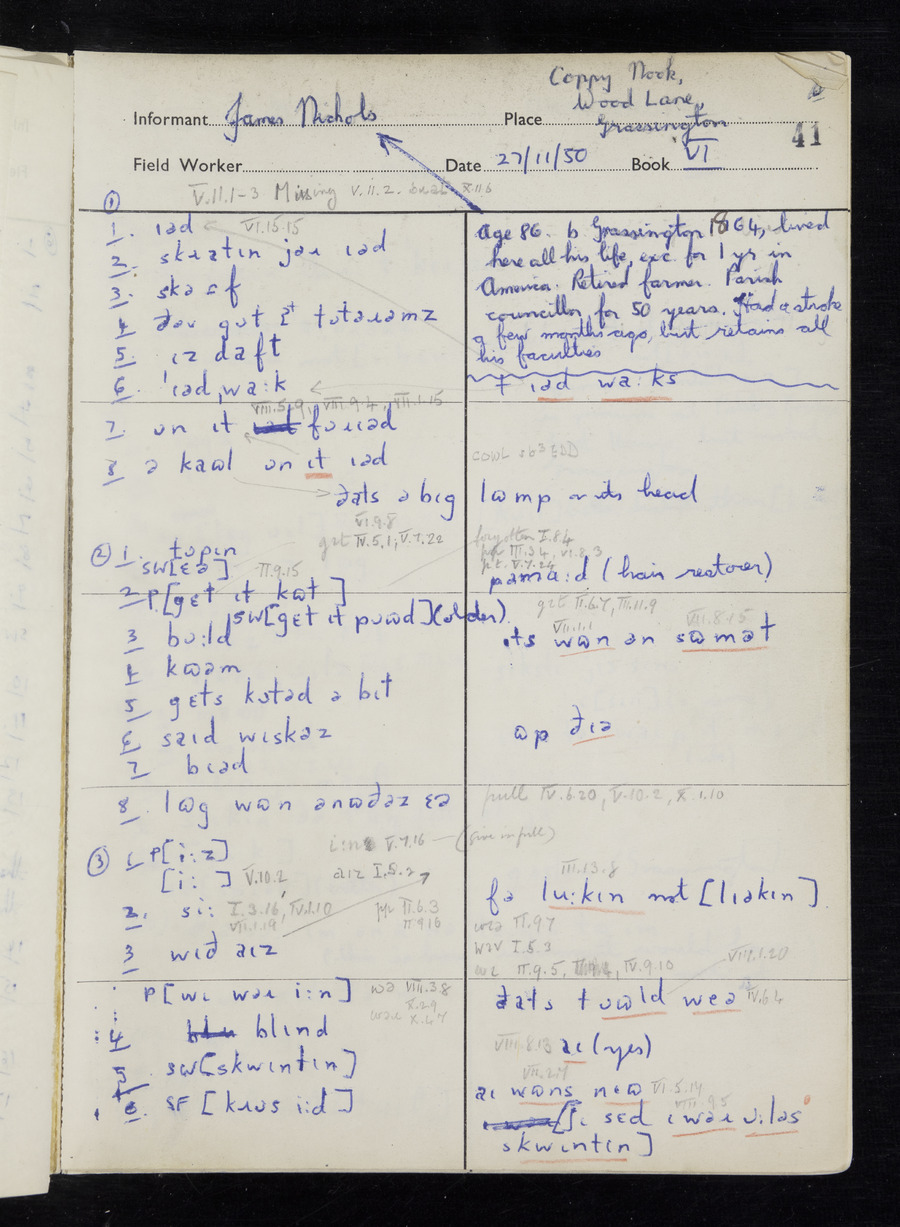 Coppy Nook,
Wood Lane,
Informant James Nichols Place Grassington
41
Field Worker Date 27/11/50 Book VI
V.11.1-3 Missing V.11.2. X.11.6
①
1. ɪad VI.15.15
2. skɹatɪn jəɹ ɪad
3. ska ɪf
4. ðəʊ gɒt ɪt
5. ɪz daft
6. ˈɪadˌwaːk
VIII.5.9, VIII.9.4, VII.1.15
7. ɒn ɪt fɒɹɪad
8. ə kaʊl ɒn ɪt ɪad
ðats ə bɪg lʊmp ɒn ɪts head
Age 86. b Grassington 1864, lived
here all his life, exc. for 1 yr in
America. Retired farmer. Parish
councillor for 50 years. Had a stroke
a few months ago, but retains all
his faculties
t ɪad waːks
cowl sb³ EDD
② 1. tɒpɪn
VI.9.8
get IV.5.1, V.7.22
SW[ɛə] II.9.15
forgotten I.8.4
pp III.3.4, VI.8.3
pt. V.7.24
pəmaːd (hair restorer)
2 P.[get ɪt kʊt]
SW[get ɪt pɒʊd](older).
get II.6.7, III.11.9
VII.1.1 VII.8.15
3 bɒːld
ɪts wʊn ən sʊmət
4 kʊəm
5 gɛts kɒtəd ə bɪt
6 saɪd wɪskəz
ʊp ðɪə
7 bɪəd
8. lʊg wʊn ənʊðəz ɛə
pull IV.6.20, V.10.2, X.1.10
③ 1 P[iːz]
V.7.16 — (give in full)
[iː ] V.10.2 aɪz I.5.2
III.13.8
fə luːkɪn not [lɪəkɪn].
2. siː I.3.16, IV.1.10
VII.1.19
pp II.6.3
II.9.16
II.9.7
I.5.3
3 wɪð aɪz
II.9.5, IV.9.10
VIII.1.20
P[wɪ wəɹ iːn] wə VIII.3.8
X.2.9
X.4.7
ðats t ʊʊld weə IV.6.4
4 blɪnd
VIII.8.13 aɪ (yes)
VII.2.7
5 SW[skwɪntɪn]
aɪ wʊns nɪʊ VI.5.14
VIII.9.5
6. SF [kɹɒs iːd]
[ʃɪ sɛd ɪ wəɹ ɒːləs
skwɪntɪn]